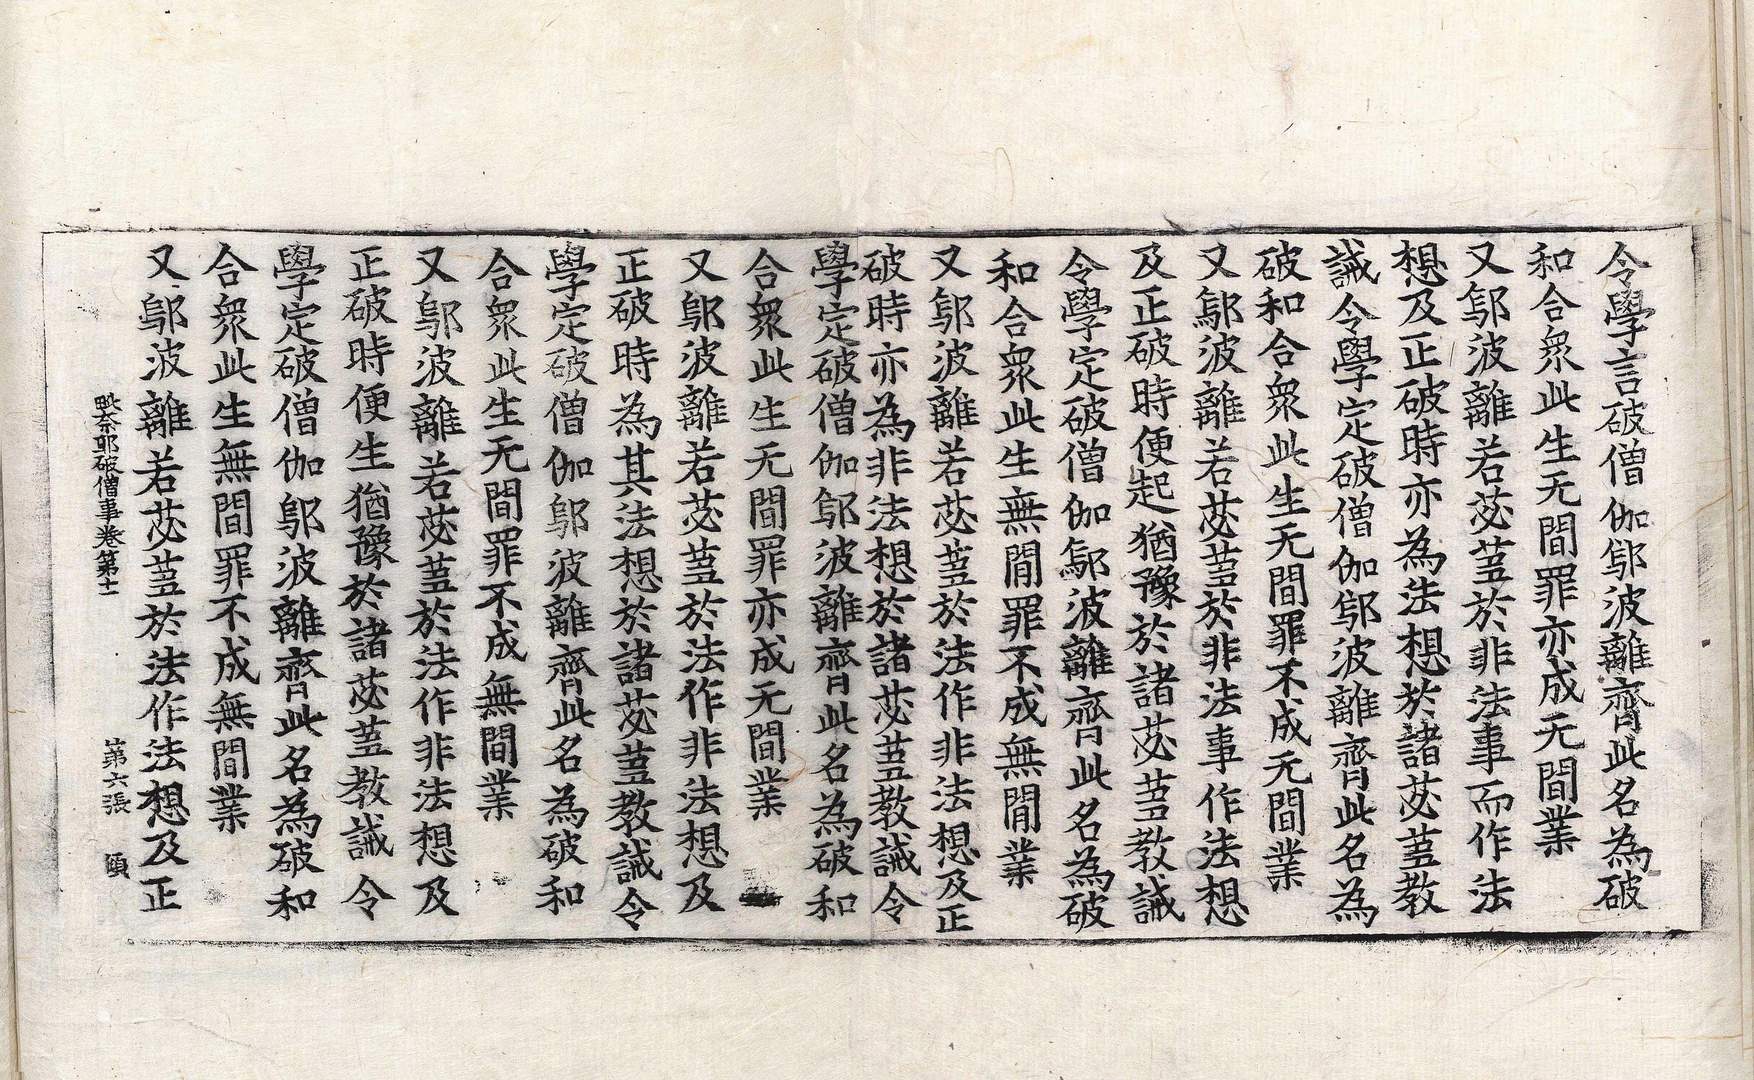 令學言破僧伽鄔波離齊此名為破
和合衆此生无間罪亦成无間業
又鄔波離若苾蒭於非法事而作法
想及正破時亦為法想於諸苾蒭教
誡令學定破僧伽鄔波離齊此名為
破和合衆此生无間罪不成无間業
又鄔波離若苾蒭於非法事作法想
及正破時便起猶豫於諸苾蒭教誡
令學定破僧伽鄔波離齊此名為破
和合衆此生無間罪不成無間業
又鄔波離若苾蒭於法作非法想及正
破時亦為非法想於諸苾蒭教誡令
學定破僧伽鄔波離齊此名為破和
合衆此生无間罪亦成无間業
又鄔波離若苾蒭於法作非法想及
正破時為其法想於諸苾蒭教誡令
學定破僧伽鄔波離齊此名為破和
合衆此生无間罪不成無間業
又鄔波離若苾蒭於法作非法想及
正破時便生猶豫於諸苾蒭教誡令
學定破僧伽鄔波離齊此名為破和
合衆此生無間罪不成無間業
又鄔波離若苾蒭於法作法想及正
毗奈耶破僧事卷第十一 第六張